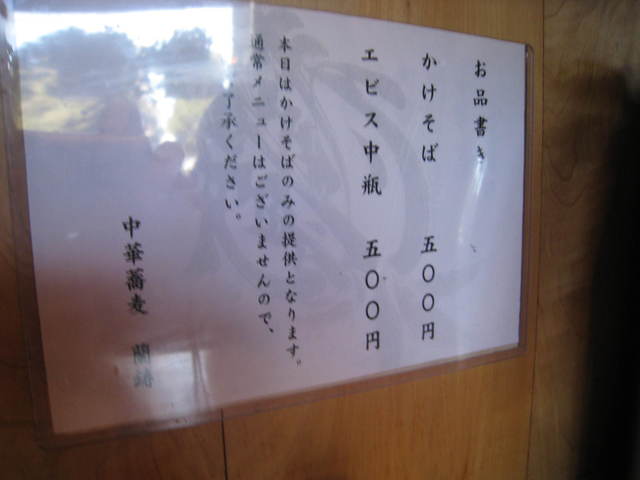 お品書き
かけそば 五〇〇円
エビス中瓶 五〇〇円
本日はかけそばのみの提供となります。
通常メニューはございませんので、
了承ください。
中華蕎麦 蘭鋳